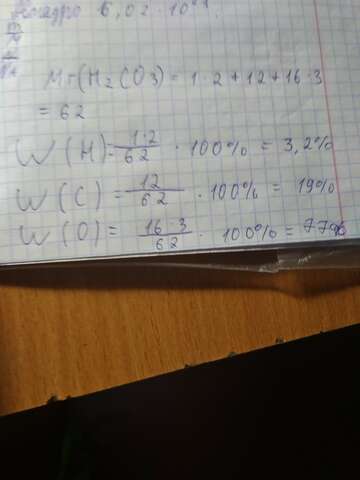 Авогадро 6,02 · 10
Mr(H₂CO₃) = 1·2+12+16·3
= 62
W(H)= 1·2/62 · 100% = 3,2%
W(C) = 12/62 · 100% = 19%
W(O)= 16·3/62 · 100% = 77%